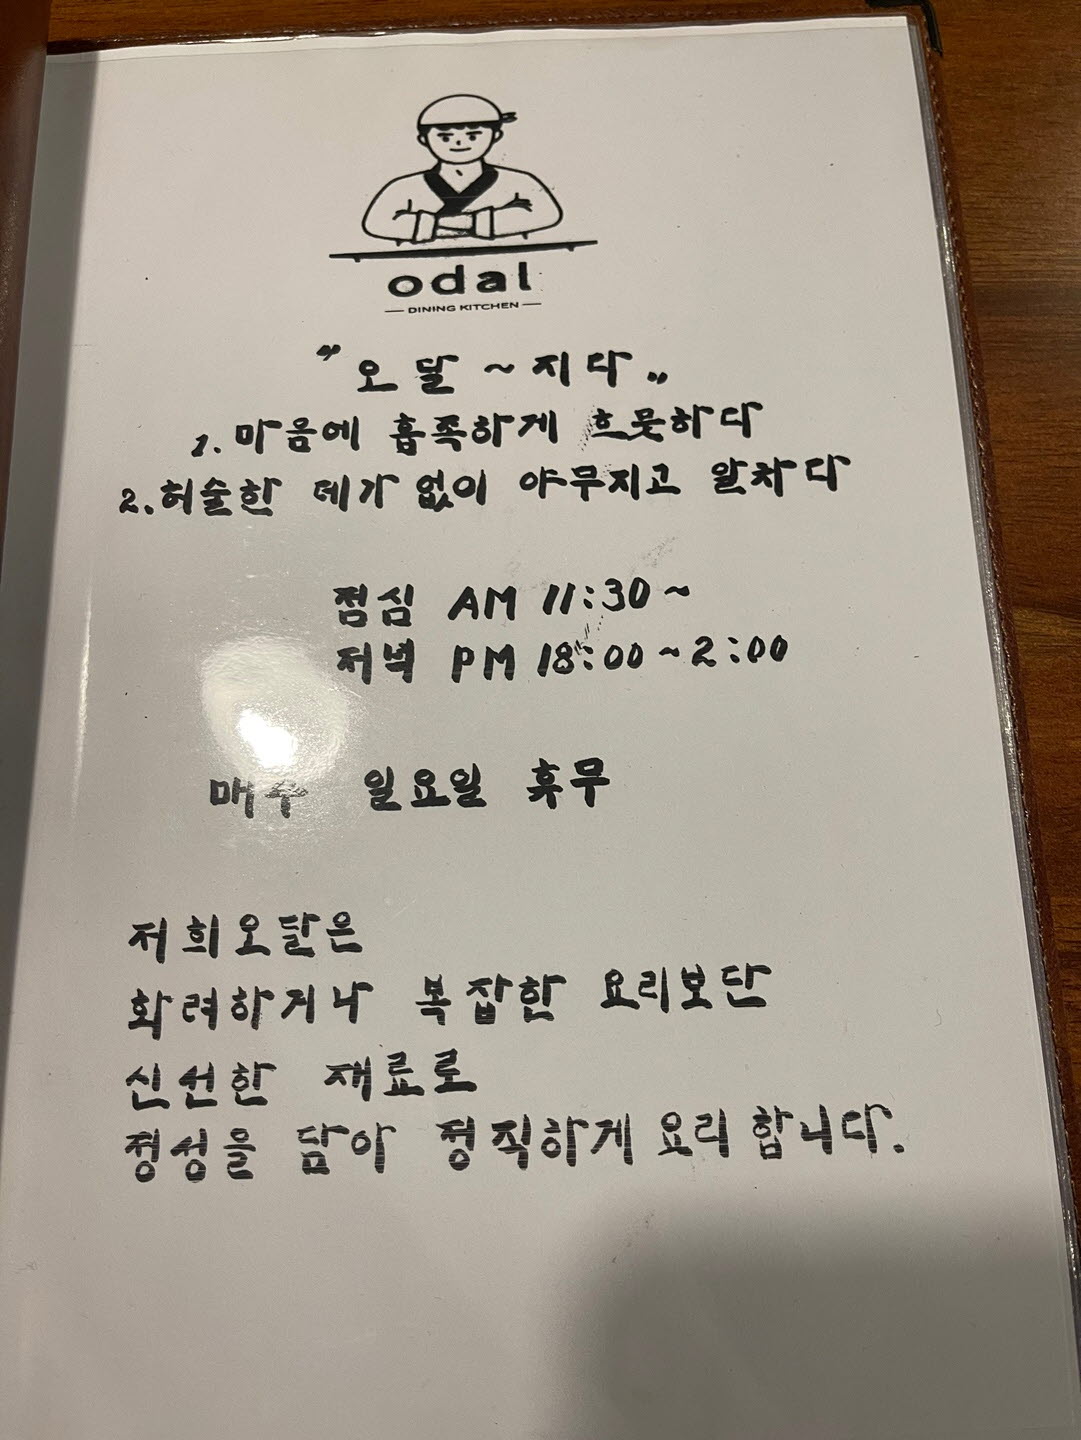 odal
DINING KITCHEN
"오달~지다"
1. 마음에 흡족하게 흐뭇하다
2. 허술한 데가 없이 야무지고 알차다
점심 AM 11:30~
저녁 PM 18:00~2:00
매주 일요일 휴무
저희오달은
화려하거나 복잡한 요리보단
신선한 재료로
정성을 담아 정직하게 요리합니다.